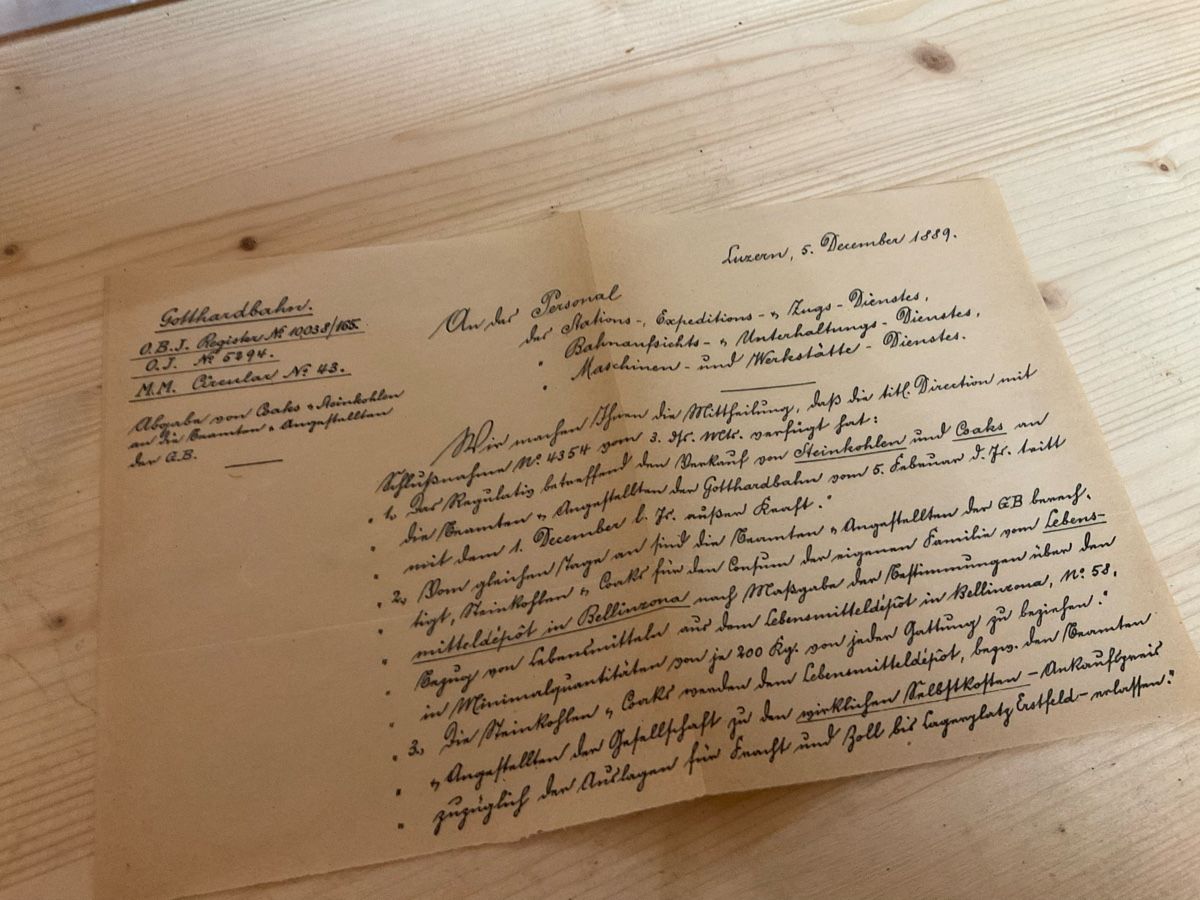 Luzern, 5. December 1889.
Gotthardbahn.
O.B.I. Register № 10038/165.
O.I. № 5294.
M.M. Circular № 43.
Abgabe von Coaks & Steinkohlen
an die Beamten & Angestellten
der G.B.
An das Personal
des Stations-, Expeditions- & Zugs-Dienstes,
" Bahnaufsichts- & Unterhaltungs-Dienstes,
" Maschinen- und Werkstätte-Dienstes.
Wir machen Ihnen die Mittheilung, daß die titl. Direction mit
Schlußnahme № 4354 vom 3. ds. Mts. verfügt hat:
" 1. Das Regulativ betreffend den Verkauf von Steinkohlen und Coaks an
" die Beamten & Angestellten der Gotthardbahn vom 5. Februar d. Js. tritt
" mit dem 1. December l. Js. außer Kraft."
" 2. Vom gleichen Tage an sind die Beamten & Angestellten der GB berech-
" tigt, Steinkohlen & Coaks für den Consum der eigenen Familie vom Lebens-
" mitteldépôt in Bellinzona nach Maßgabe der Bestimmungen über den
" Bezug von Lebensmitteln aus dem Lebensmitteldépôt in Bellinzona, № 58,
" in Minimalquantitäten von je 200 Kg. von jeder Gattung zu beziehen."
" 3. Die Steinkohlen & Coaks werden dem Lebensmitteldépôt, bezw. den Beamten
" & Angestellten der Gesellschaft zu den wirklichen Selbstkosten – Ankaufspreis
" zuzüglich der Auslagen für Fracht und Zoll bis Lagerplatz Erstfeld – erlassen."